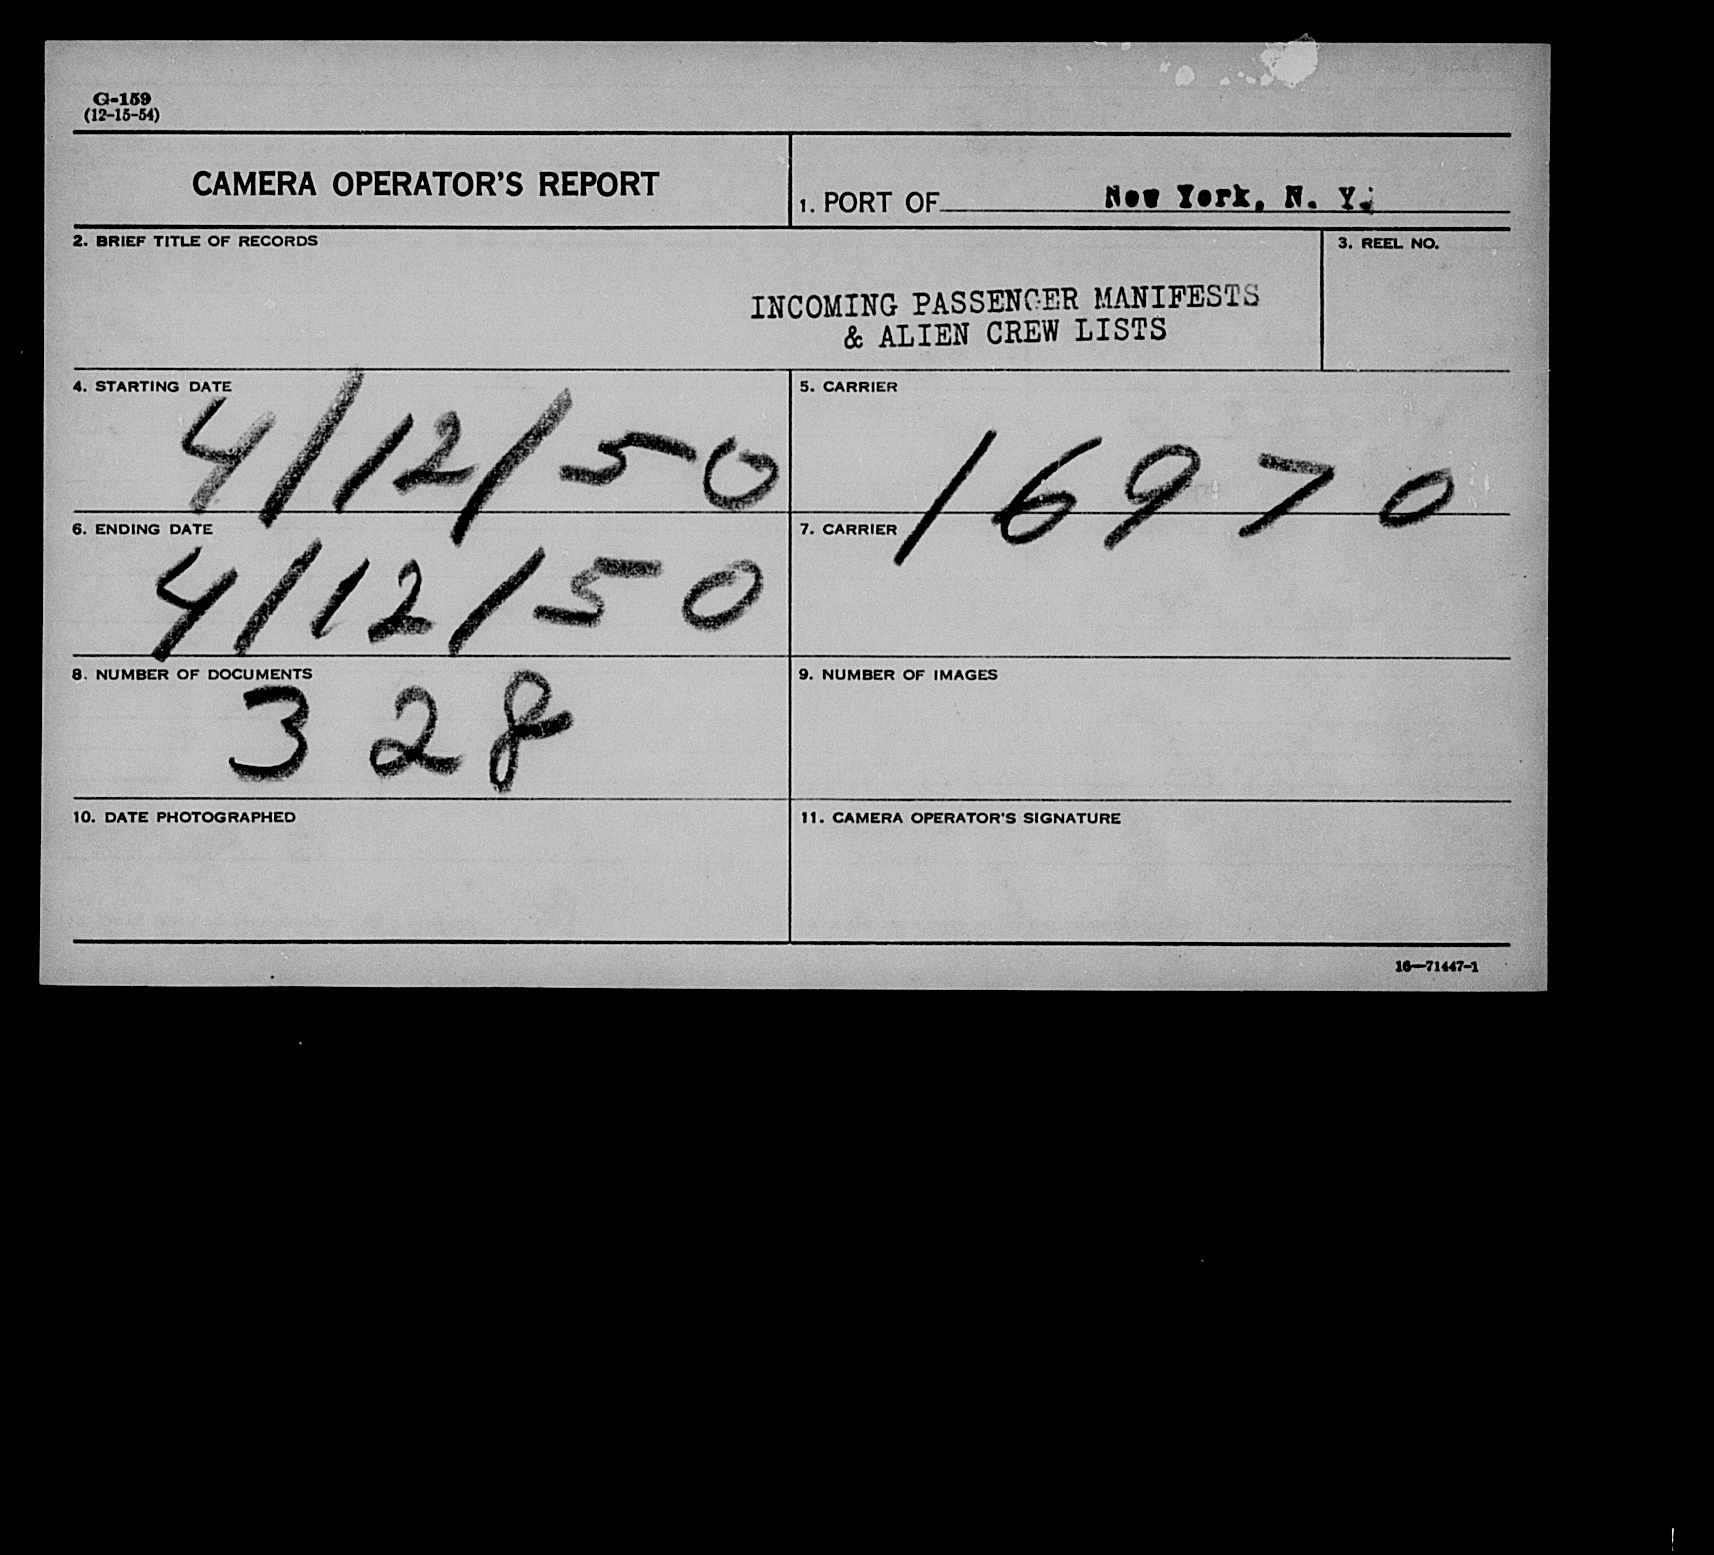 G-159
(12-15-54)
CAMERA OPERATOR'S REPORT
1. PORT OF New York, N. Y.
2. BRIEF TITLE OF RECORDS
INCOMING PASSENGER MANIFESTS
& ALIEN CREW LISTS
3. REEL NO.
4. STARTING DATE
4/12/50
5. CARRIER
16970
6. ENDING DATE
4/12/50
7. CARRIER
8. NUMBER OF DOCUMENTS
328
9. NUMBER OF IMAGES
10. DATE PHOTOGRAPHED
11. CAMERA OPERATOR'S SIGNATURE
16—71447-1